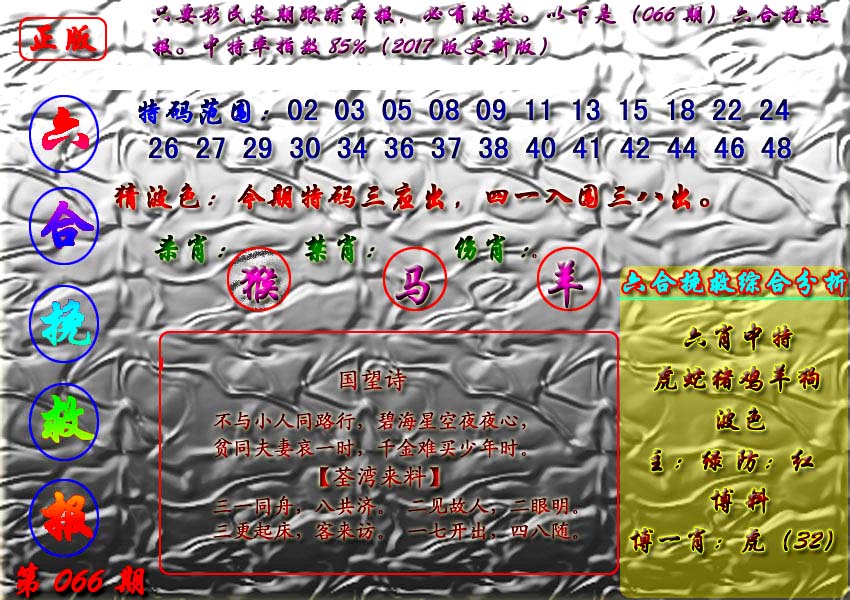 正版
只要彩民长期跟踪本报，必有收获。以下是（066期）六合挽救
报。中特率指数85%（2017版更新版）
六合挽救报
第066期
特码范围：02 03 05 08 09 11 13 15 18 22 24
26 27 29 30 34 36 37 38 40 41 42 44 46 48
猜波色：今期特码三应出，四一入围三八出。
杀肖：猴 禁肖：马 伤肖：羊。
国望诗
不与小人同路行，碧海星空夜夜心，
贫同夫妻哀一时，千金难买少年时。
【荃湾来料】
三一同舟，八共济。 二见故人，二眼明。
三更起床，客来访。 一七开出，四八随。
六合挽救综合分析
六肖中特
虎蛇猪鸡羊狗
波色
主：绿防：红
博料
博一肖：虎（32）